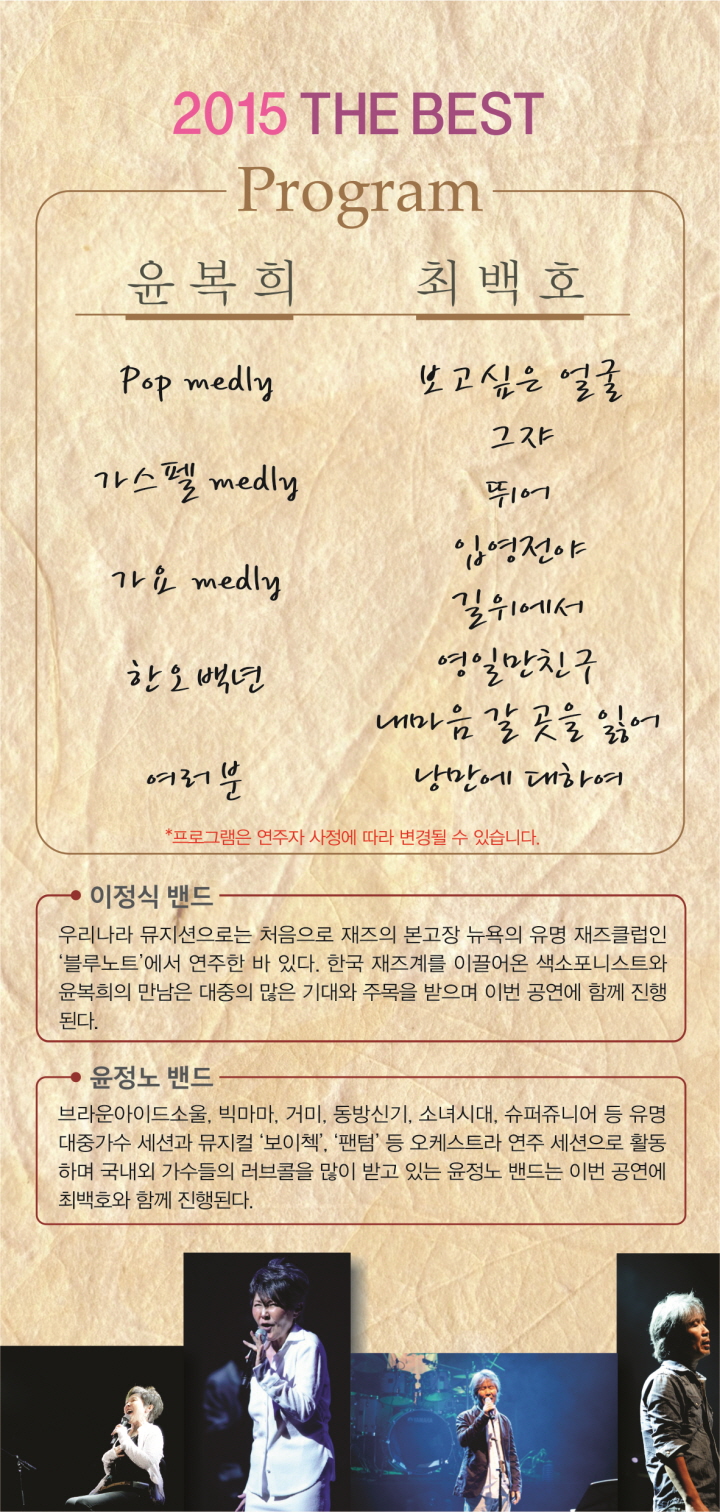 2015 THE BEST
Program
윤복희
Pop medly
가스펠 medly
가요 medly
한오백년
여러분
최백호
보고싶은 얼굴
그쟈
뛰어
입영전야
길위에서
영일만친구
내마음 갈 곳을 잃어
낭만에 대하여
*프로그램은 연주자 사정에 따라 변경될 수 있습니다.
이정식 밴드
우리나라 뮤지션으로는 처음으로 재즈의 본고장 뉴욕의 유명 재즈클럽인
‘블루노트’에서 연주한 바 있다. 한국 재즈계를 이끌어온 색소포니스트와
윤복희의 만남은 대중의 많은 기대와 주목을 받으며 이번 공연에 함께 진행
된다.
윤정노 밴드
브라운아이드소울, 빅마마, 거미, 동방신기, 소녀시대, 슈퍼쥬니어 등 유명
대중가수 세션과 뮤지컬 ‘보이첵’, ‘팬텀’ 등 오케스트라 연주 세션으로 활동
하며 국내외 가수들의 러브콜을 많이 받고 있는 윤정노 밴드는 이번 공연에
최백호와 함께 진행된다.
YAMAHA